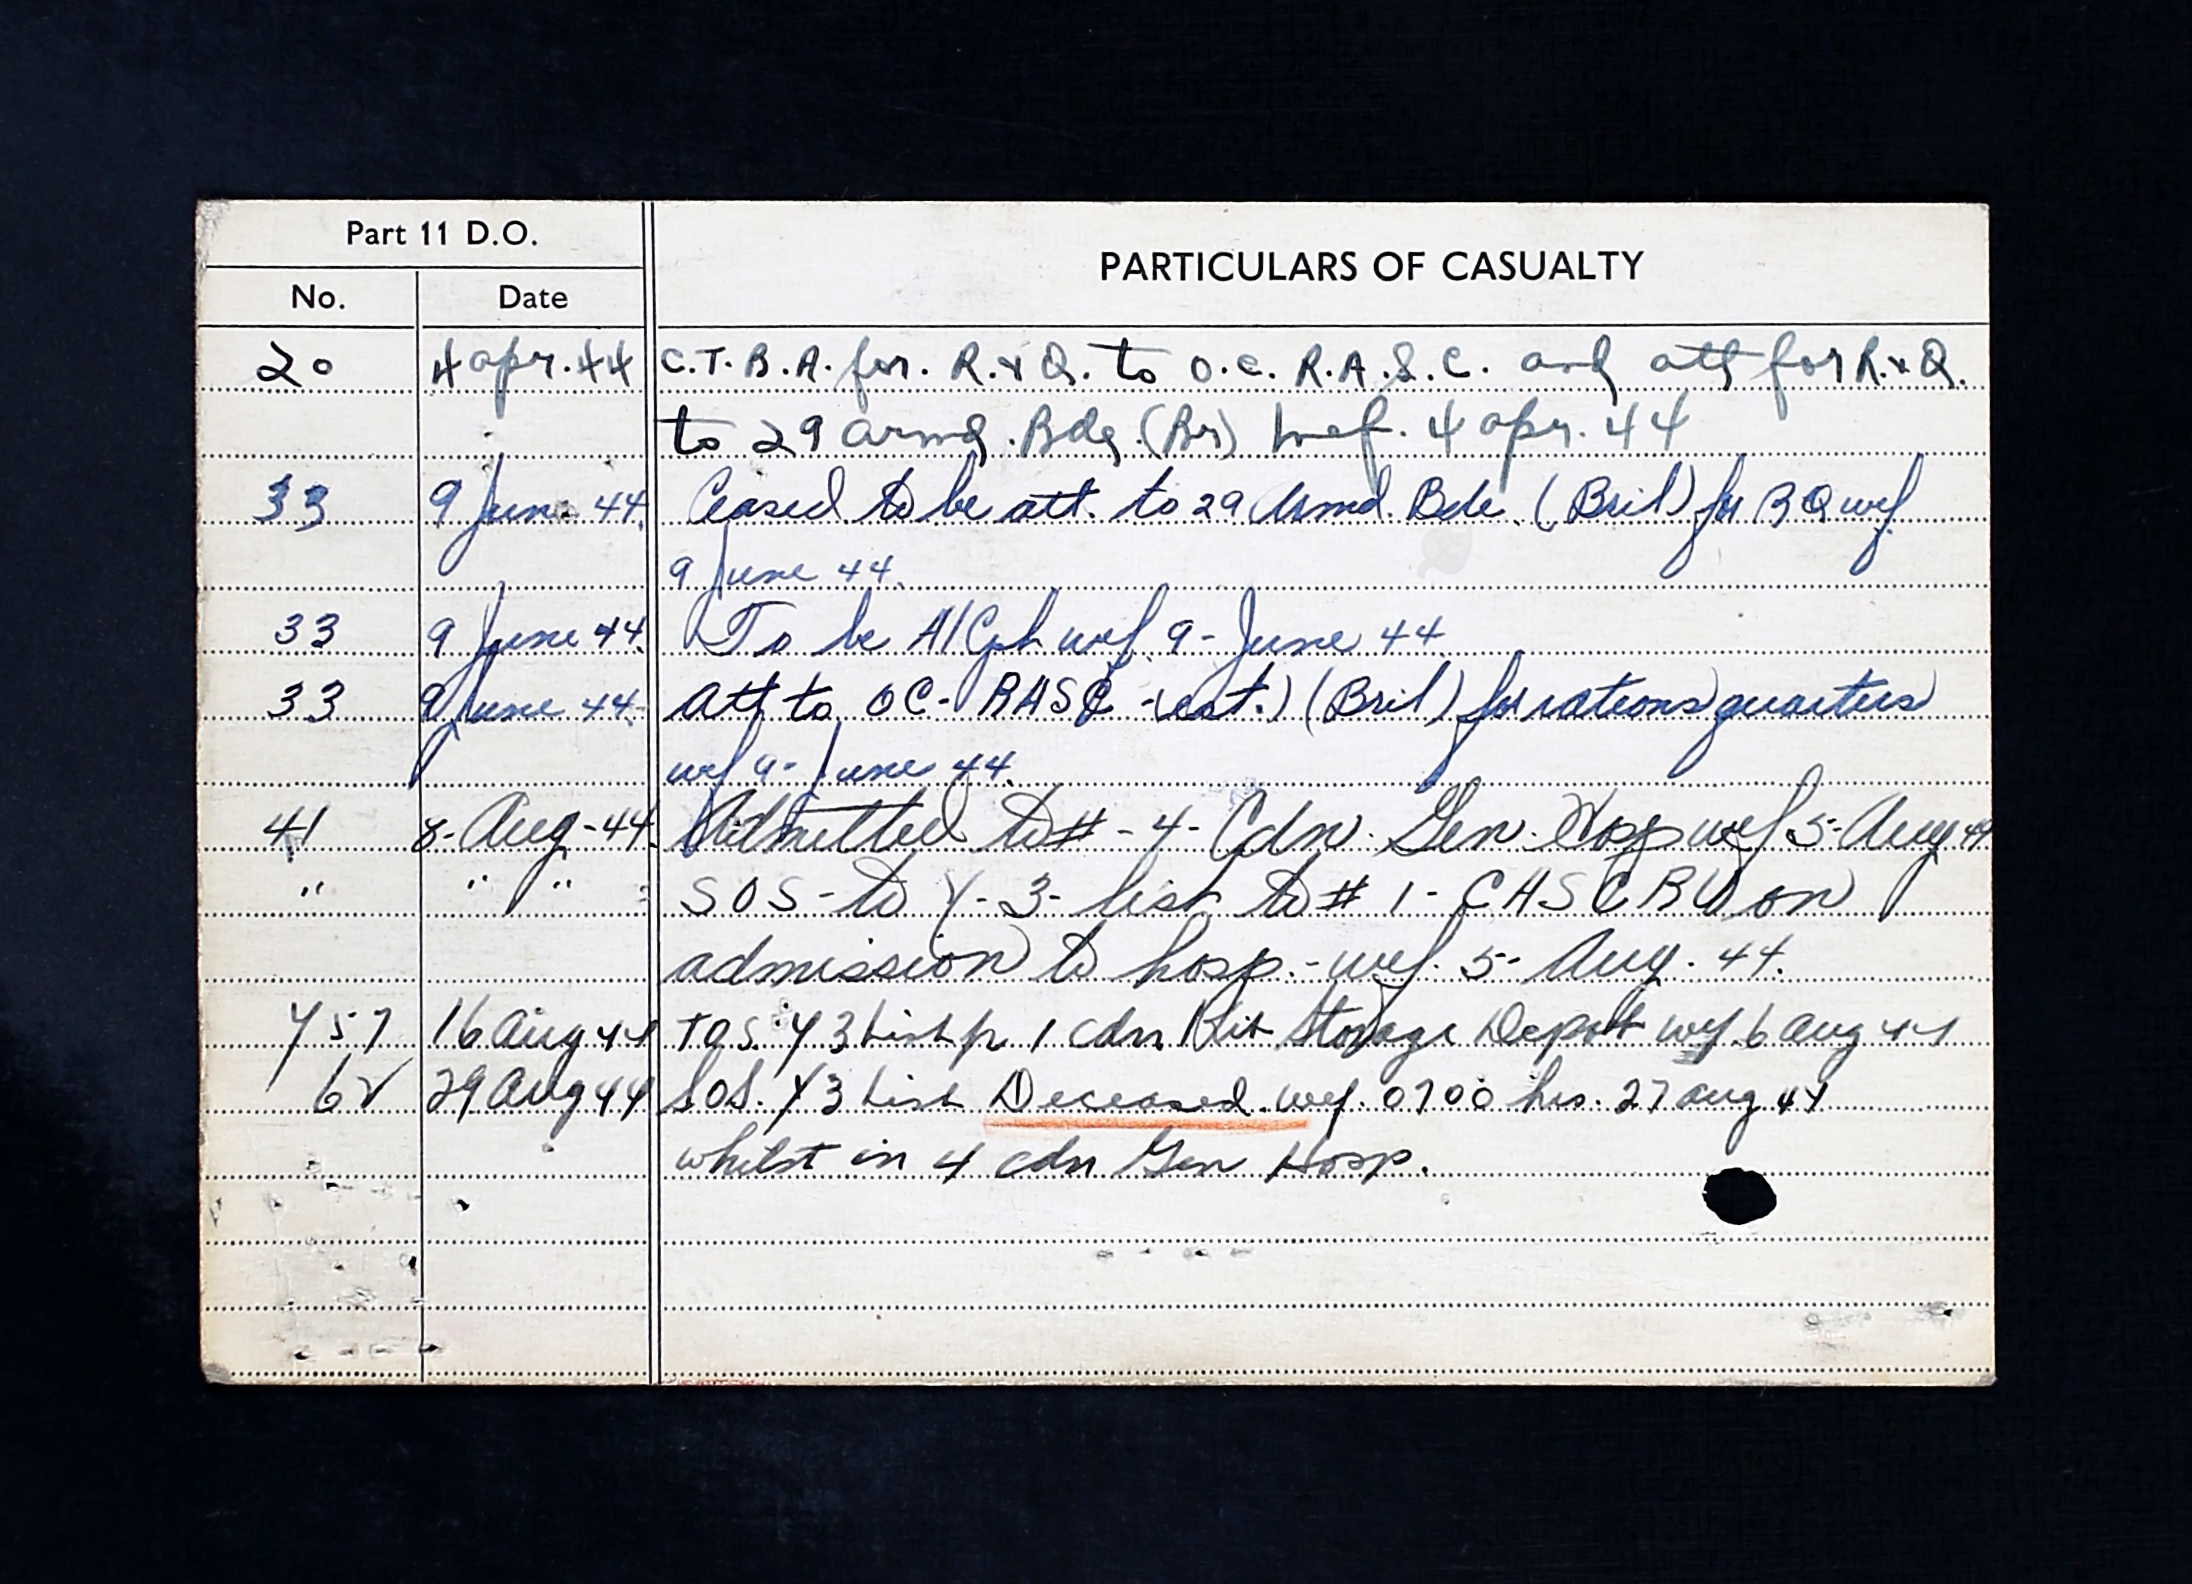 Part 11 D.O.
PARTICULARS OF CASUALTY
No. Date
20 4 Apr. 44 C.T.B.A. for. R.&Q. to O.C. R.A.S.C. and att for R.&Q.
to 29 armd. Bde. (Br) wef. 4 Apr. 44
33 9 June 44. Ceased to be att. to 29 Armd. Bde. (Brit) for RQ wef
9 June 44.
33 9 June 44. To be A/Cpl wef. 9-June 44.
33 9 June 44. Att to OC-RASC (Brit) for rations quarters
wef 9-June 44.
41 8-Aug-44. Admitted to #-4-Cdn. Gen. Hosp wef 5-Aug 44
" " " SOS-to Y-3-list to # 1-CASCRU on
admission to hosp.-wef. 5-Aug. 44.
Y57 16 Aug 44 TOS. Y3 List fr 1 Cdn Kit Storage Depot wef 6 Aug 44
62 29 Aug 44 SOS. Y3 List Deceased. wef. 0700 hrs. 27 Aug 44
whilst in 4 Cdn Gen Hosp.